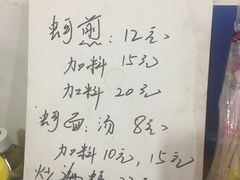 蚵煎：12元
加料 15元
加料 20元
蚵面：汤 8元
加料10元，15元